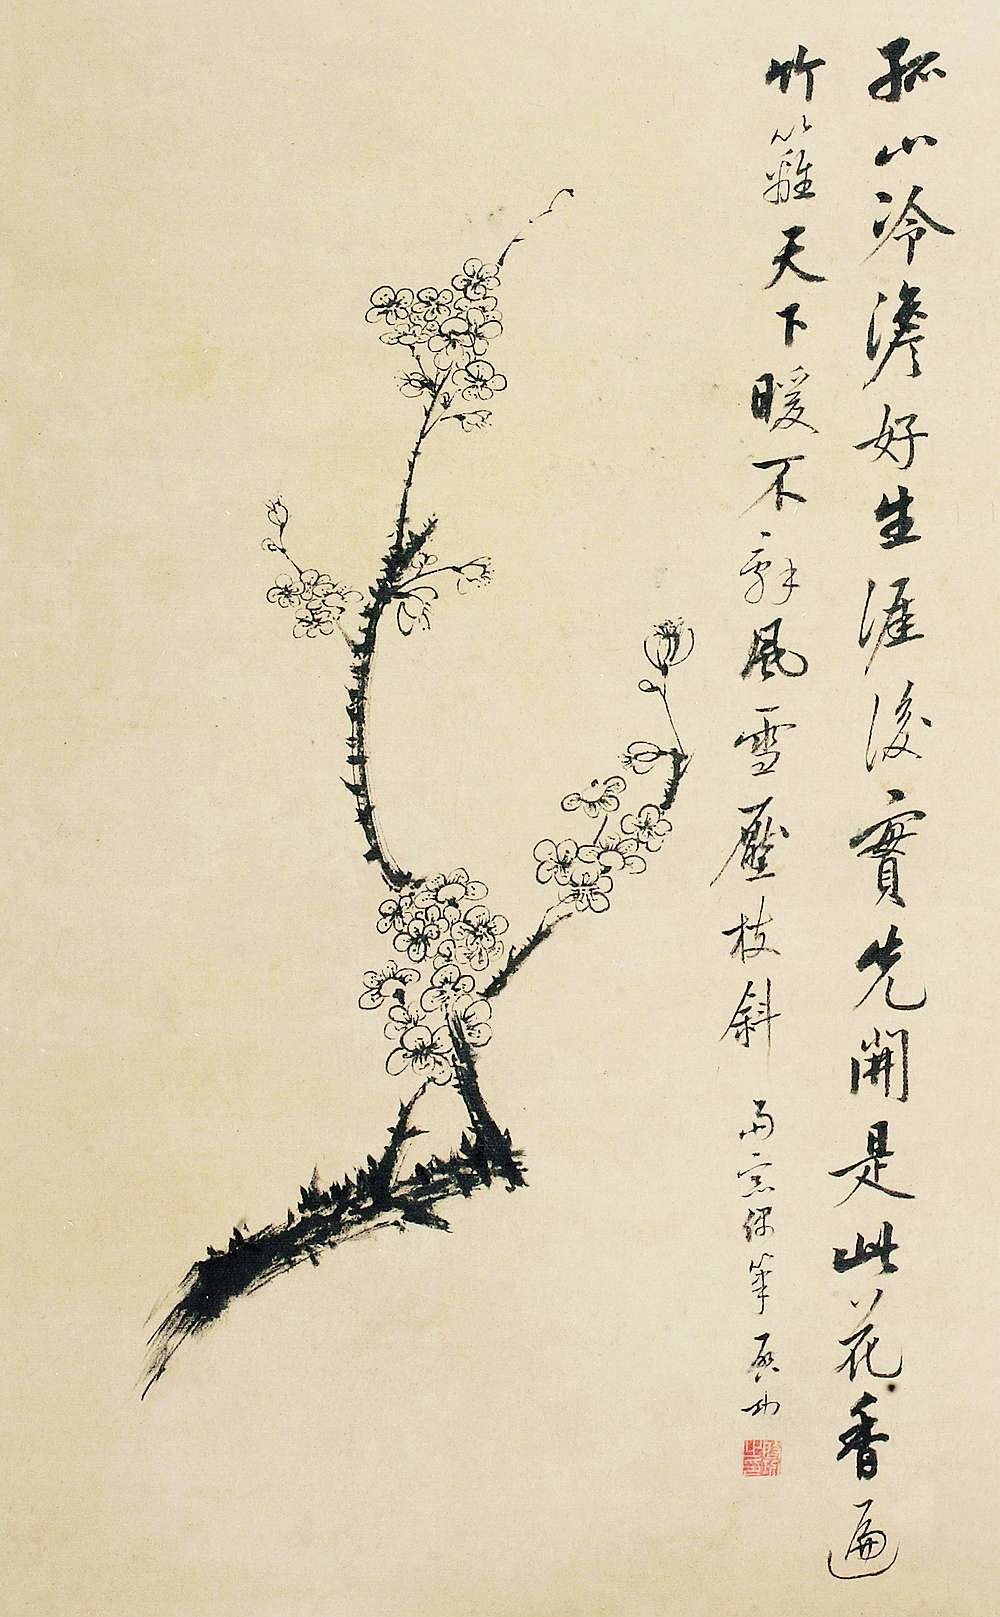 孤山冷澹好生涯後實先開是此花香遍
竹籬天下暖不辭風雪壓枝斜
雨窗偶筆 啟功